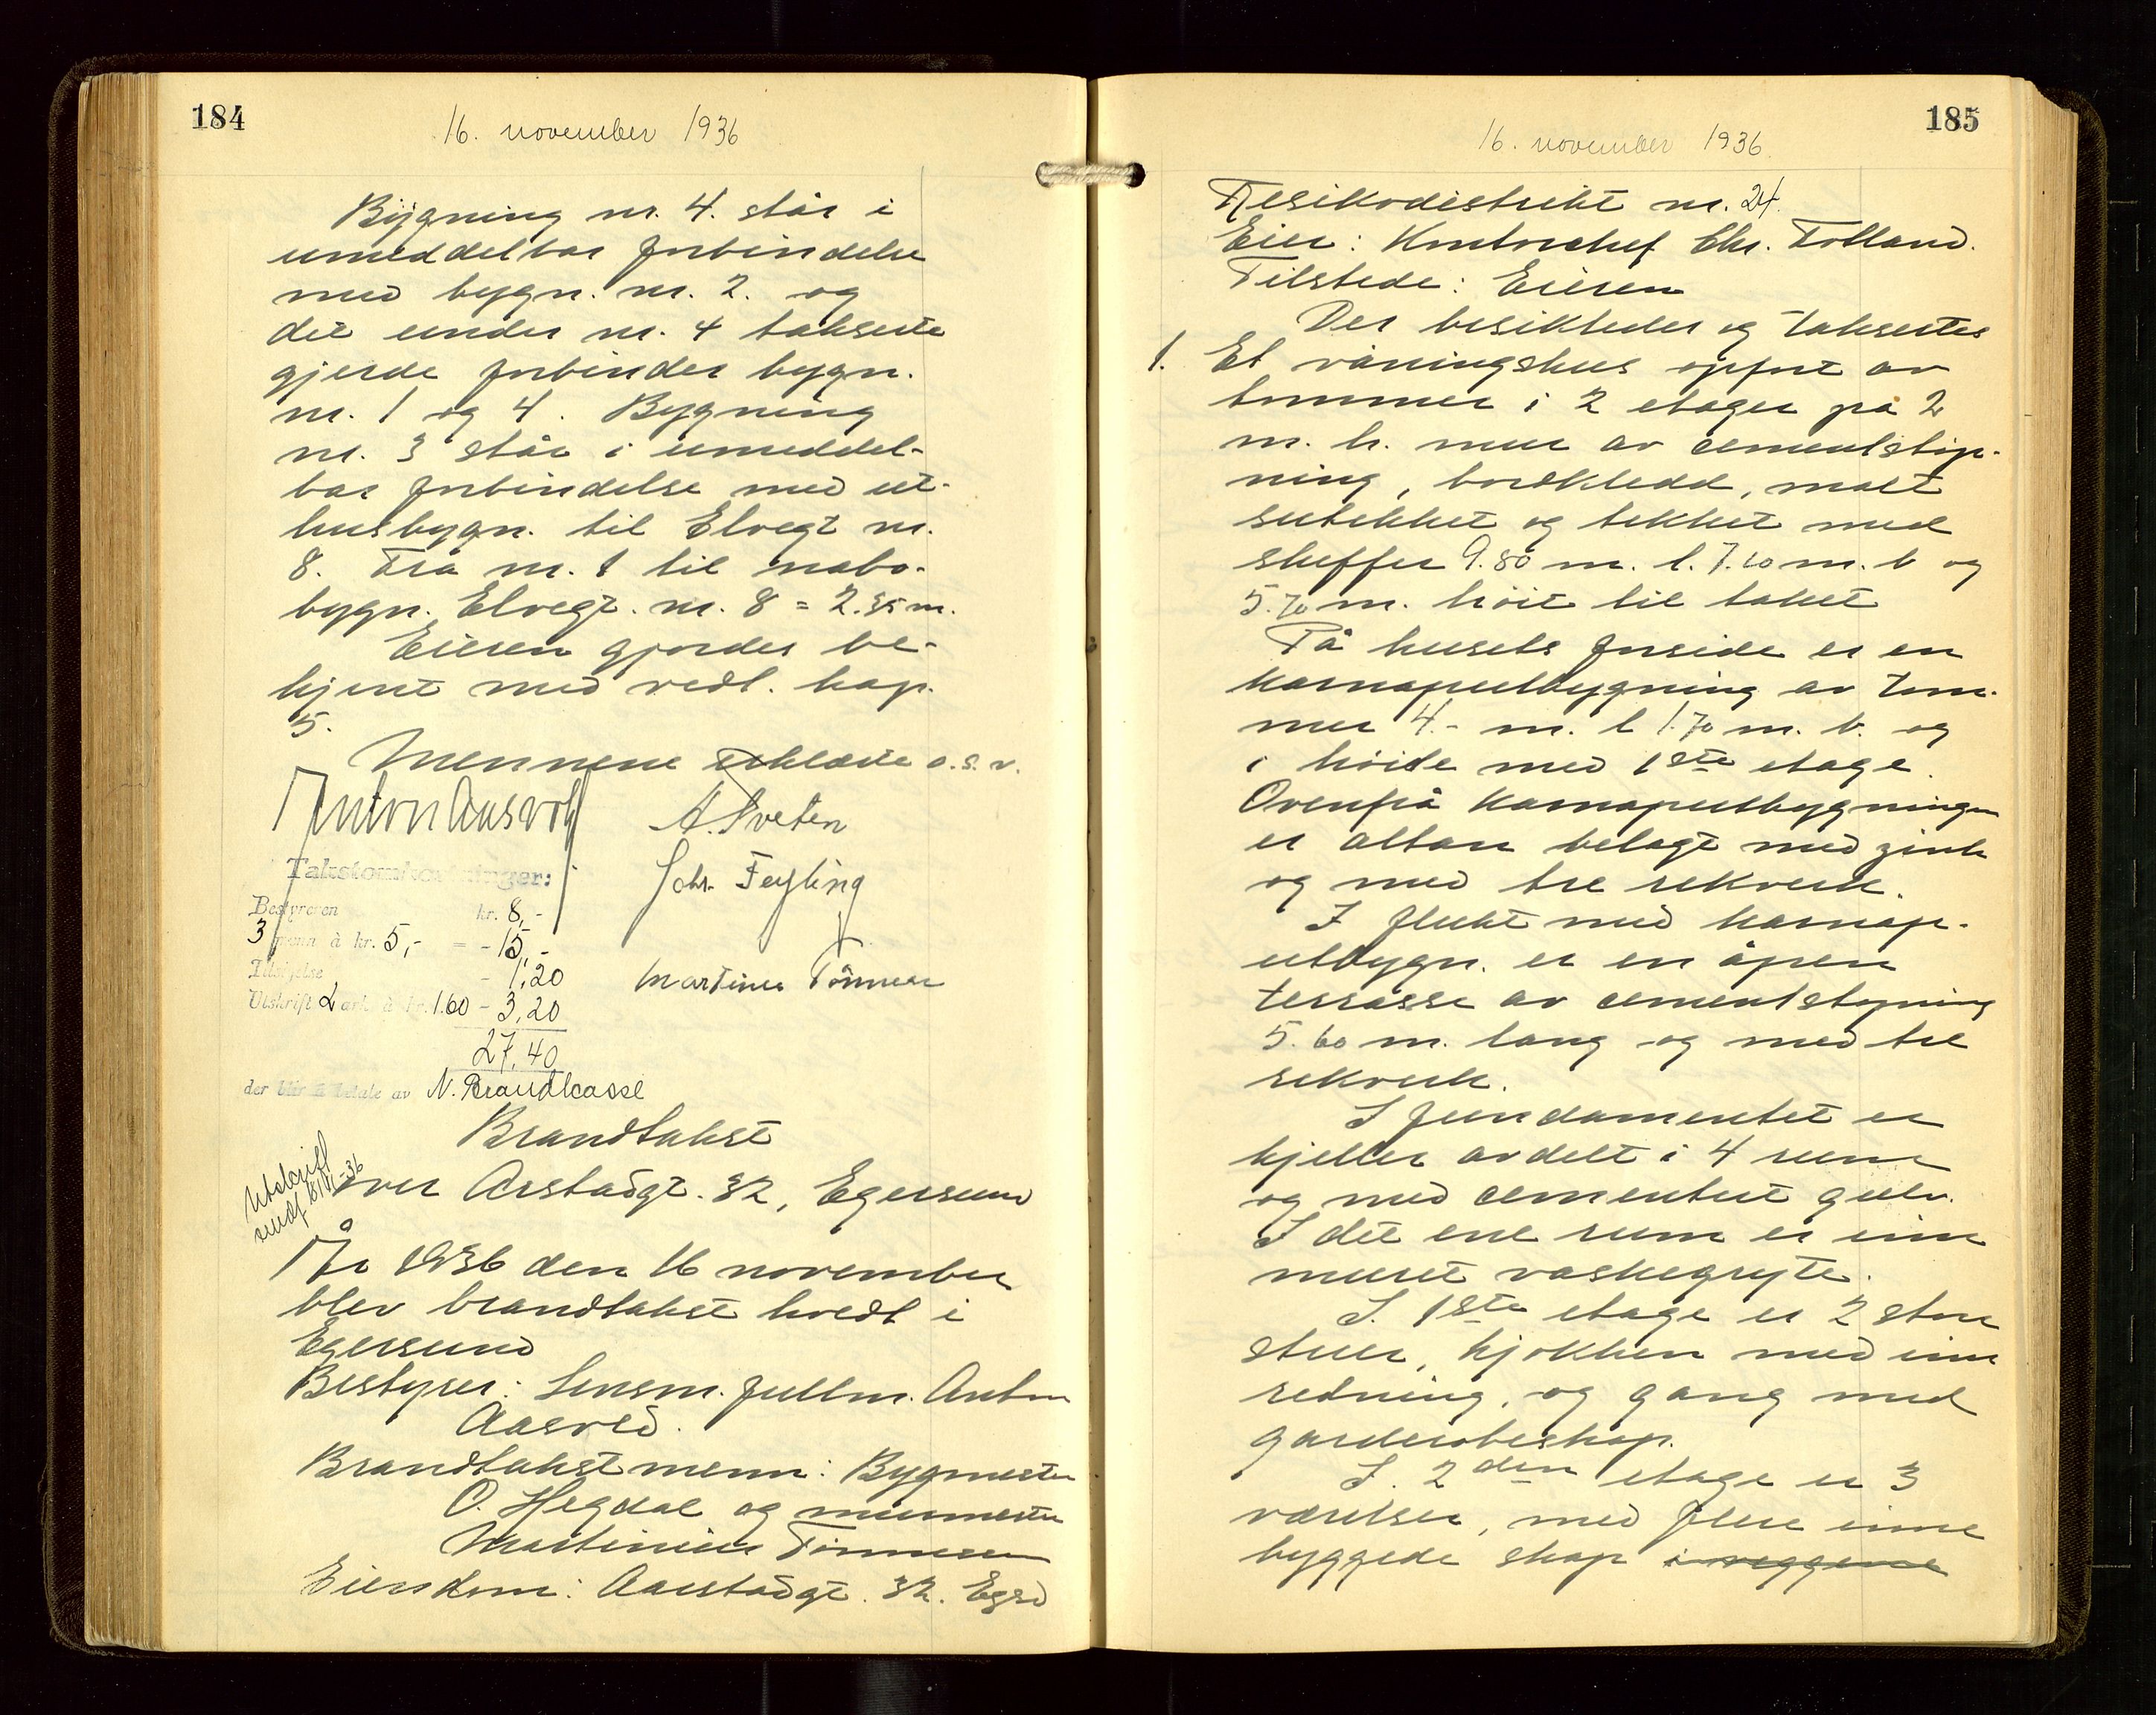 184
16. november 1936
Bygning nr. 4. står i
umiddelbar forbindelse
med bygn. nr. 2. og
det under nr. 4 takserte
gjerde forbinder bygn.
nr. 1 og 4. Bygning
nr. 3 står i umiddel-
bar forbindelse med ut-
husbygn. til Elvegt nr.
8. Fra nr. 1 til nabo-
bygn. Elvegt. nr. 8 = 2.35 m.
Eieren gjordes be-
kjent med vedt. kap.
5.
Mennene erklærte o.s.v.
Anton Aasvold
A. Sveten
Takstomkostninger:
Johs. Feyling
Bestyreren kr. 8,-
3 menn à kr. 5,- = - 15,-
Tilsigelse - 1,20
Martinus Tönnessen
Utskrift 2 ark à kr. 1.60 - 3,20
27,40
der blir å betale av N. Brandkasse
Brandtakst
Utskrift
sendt
over Arstadgt. 32, Egersund
År 1936 den 16 november
blev brandtakst holdt i
Egersund
Bestyrer: Lensm. fullm. Anton
Aasvold.
Brandtakstmenn: Bygmester
O. Hegdal og murmester
Martinius Tönnessen
Eiendom: Aarstadgt. 32. Egsd
185
16. november 1936.
Resikodistrikt nr. 24.
Eier: Kontorchef Chr. Tolland.
Tilstede: Eieren
Der besiktedes og taksertes
1. Et våningshus opført av
tømmer i 2 etager på 2
m. h. mur av cementstøp-
ning, bordkledd, malt
sutekket og tekket med
skeffer 9.80 m. l. 7.10 m. b og
5.70 m. höit til taket
På husets forside er en
karnaputbygning av töm-
mer 4.- m. l 1.70 m. b. og
i höide med 1ste etage.
Ovenpå karnaputbygningen
er altan belagt med zink
og med tre rekverk.
I flukt med karnap-
utbygn. er en åpen
terrasse av cementstöpning
5.60 m. lang og med tre
rekverk.
I fundamentet er
kjeller avdelt i 4 rum
og med cementert gulv.
I det ene rum er inn
muret vaskegryte.
I. 1ste etage er 2 store
stuer, kjøkken med inn
redning, og gang med
garderobeskap.
I. 2den etage er 3
værelser, med flere inne
byggede skap i veggene